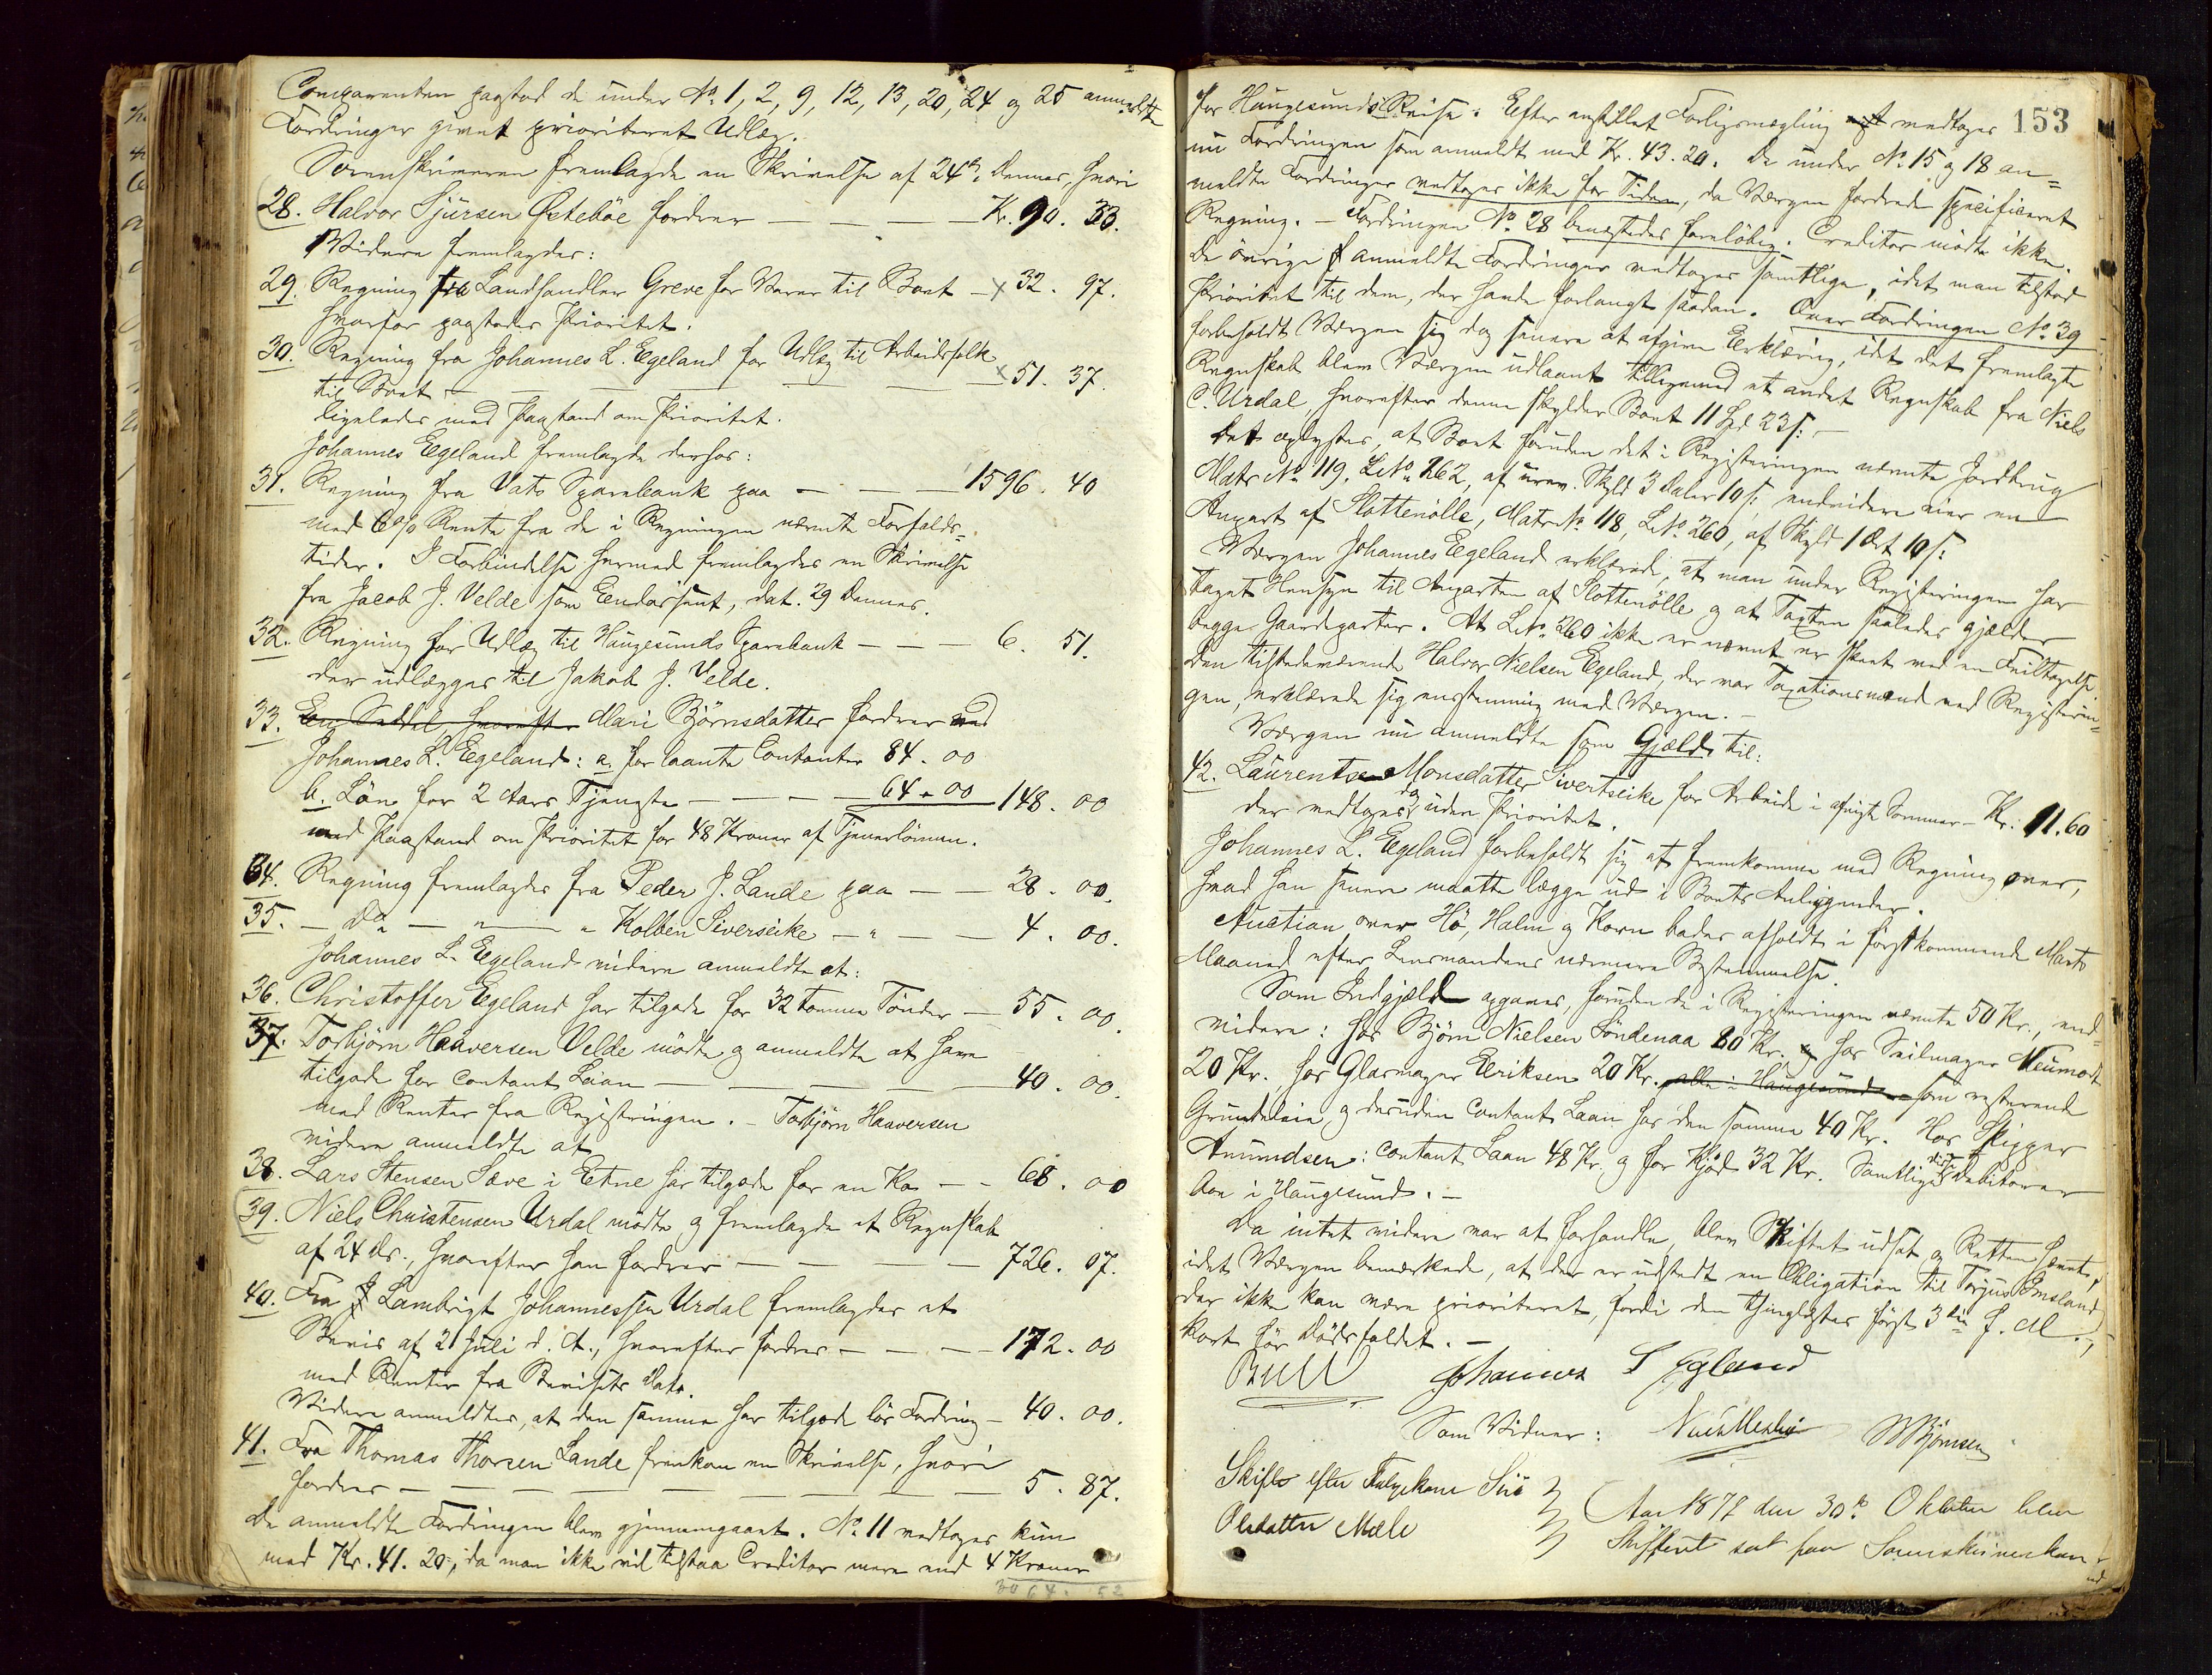 Comparenten paastod de under No. 1, 2, 9, 12, 13, 20, 24 og 25 anmeldte
Fordringer givet prioriteret Udlæg.
Sorenskriveren fremlagde en Skrivelse af 24de dennes, hvori
28. Halvor Sjursen Østebøe fordrer — — — Kr. 90. 33.
Videre fremlagdes:
29. Regning fra Landhandler Greve for Varer til Boet — x 32. 97.
hvorfor paastodes Prioritet.
30. Regning fra Johannes L. Egeland for Udlæg til Arbeidsfolk
til Boet — — — — x 51. 37.
ligeledes med Paastand om Prioritet.
Johannes Egeland fremlagde derhos:
31. Regning fra Vats Sparebank paa — — — 1596. 40
med 6% Rente fra de i Regningen nævnte Forfalds=
tider. I Forbindelse hermed fremlagdes en Skrivelse
fra Jacob J. Velde som Endossent, dat. 29 dennes.
32. Regning for Udlæg til Haugesunds Sparebank — — — 6. 51.
der udlægges til Jakob J. Velde.
33. En Seddel, hvorefter Mari Bjørnsdatter fordrer ved
Johannes L. Egeland: a. for laante Contanter 84. 00
b. Løn for 2 Aars Tjeneste — — — 64. 00 148. 00
med Paastand om Prioritet for 48 Kroner af Tjenerlønnen.
34. Regning fremlagdes fra Peder J. Lande paa — — 28. 00.
35. — Do — " — " Kolben Siverseike — " — — 4. 00.
Johannes L. Egeland videre anmeldte at:
36. Christoffer Egeland har tilgode for 32 tomme Tønder — 55. 00.
37. Torbjørn Haaversen Velde mødte og anmeldte at have
tilgode for contant Laan — — — — 40. 00.
med Renter fra Registringen. — Torbjørn Haaversen
videre anmeldte at
38. Lars Stensen Sæve i Etne har tilgode for en Ko — — 68. 00
39. Niels Christensen Urdal mødte og fremlagde et Regnskab
af 24 ds., hvorefter han fordrer — — — — 726. 07.
40. Fra Lambrigt Johannessen Urdal fremlagdes et
Bevis af 2 Juli d. A., hvorefter fordres — — — 172. 00
med Renter fra Bevisets Dato.
Videre anmeldtes, at den samme har tilgode løs Fordring — 40. 00.
41. Fra Thomas Thorsen Lande fremkom en Skrivelse, hvori
fordres — — — — — — — 5. 87.
De anmeldte Fordringer blev gjennemgaaet. No. 11 vedtoges kun
med Kr. 41. 20, da man ikke vil tilstaa Creditor mere end 4 Kroner
3064. 52
153
for Haugesunds Reise. Efter anstillet Forligsmægling vedtoges
nu Fordringen som anmeldt med Kr. 43. 20. De under No. 15 og 18 an=
meldte Fordringer vedtoges ikke for Tiden, da Værgen fordrede specificeret
Regning. — Fordringen No. 28 benegtedes foreløbig. Creditor mødte ikke.
De øvrige anmeldte Fordringer vedtoges samtlige, idet man tilstod
Prioritet til dem, der havde forlangt saadan. Over Fordringen No. 39
forbeholdt Værgen sig dog senere at afgive Erklæring, idet det fremlagte
Regnskab blev Værgen udlaant tilligemed et andet Regnskab fra Niels
C. Urdal, hvorefter denne skylder Boet 11 Spd 23 s: —
Det oplystes, at Boet foruden det i Registeringen nævnte Jordbrug
Matr No. 119, L.No. 262, af urev. Skyld 3 Daler 10 s: endvidere eier en
Anpart af Slottenølle, Matr No. 118, L.No. 260, af Skyld 1 Ort 10 s:
Værgen Johannes Egeland erklærede, at man under Registeringen har
taget Hensyn til Anparten af Slottenølle og at Taxten saaledes gjælder
begge Gaardparter. At L.No. 260 ikke er nævnt er skeet ved en Feiltagelse.
Den tilstedeværende Halvor Nielsen Egeland, der var Taxationsmand ved Registerin=
gen, erklærede sig enstemmig med Værgen. —
Værgen nu anmeldte som Gjæld til:
42. Laurentse Monsdatter Sivertseike for Arbeide i afvigte Sommer — Kr: 11.60
der vedtoges dog uden Prioritet.
Johannes L. Egeland forbeholdt sig at fremkomme med Regning over,
hvad han senere maatte lægge ud i Boets Anliggender.
Auction over Hø, Halm og Korn bades afholdt i førstkommende Marts
Maaned efter Lensmandens nærmere Bestemmelse.
Som Indgjæld opgaves, foruden de i Registeringen nævnte 50 Kr., end=
videre: hos Bjørn Nielsen Søndenaa 80 Kr. hos Seilmager Neumodt
20 Kr., hos Glasmager Eriksen 20 Kr. alle i Haugesund som resterende
Grundleie, og desuden contant Laan hos den samme 40 Kr. Hos Skipper
Amundsen: contant Laan 48 Kr. og for Kjød 32 Kr. Samtlige disse Debitorer
boe i Haugesund. —
Da intet videre var at forhandle, blev Skiftet udsat og Retten hævet,
idet Værgen bemærkede, at der er udstedt en Obligation til Torjus Emsland
der ikke kan være prioriteret, fordi den thinglæstes først 3die f. M.,
kort før Dødsfaldet. —
Bull Johannes L Egeland
Som Vidner: BBjørnsen
Skifte efter Siri
Olsdatter Mæle
Aar 1877 den 30te Oktober blev
Skifteret sat paa Sorenskriverkon=